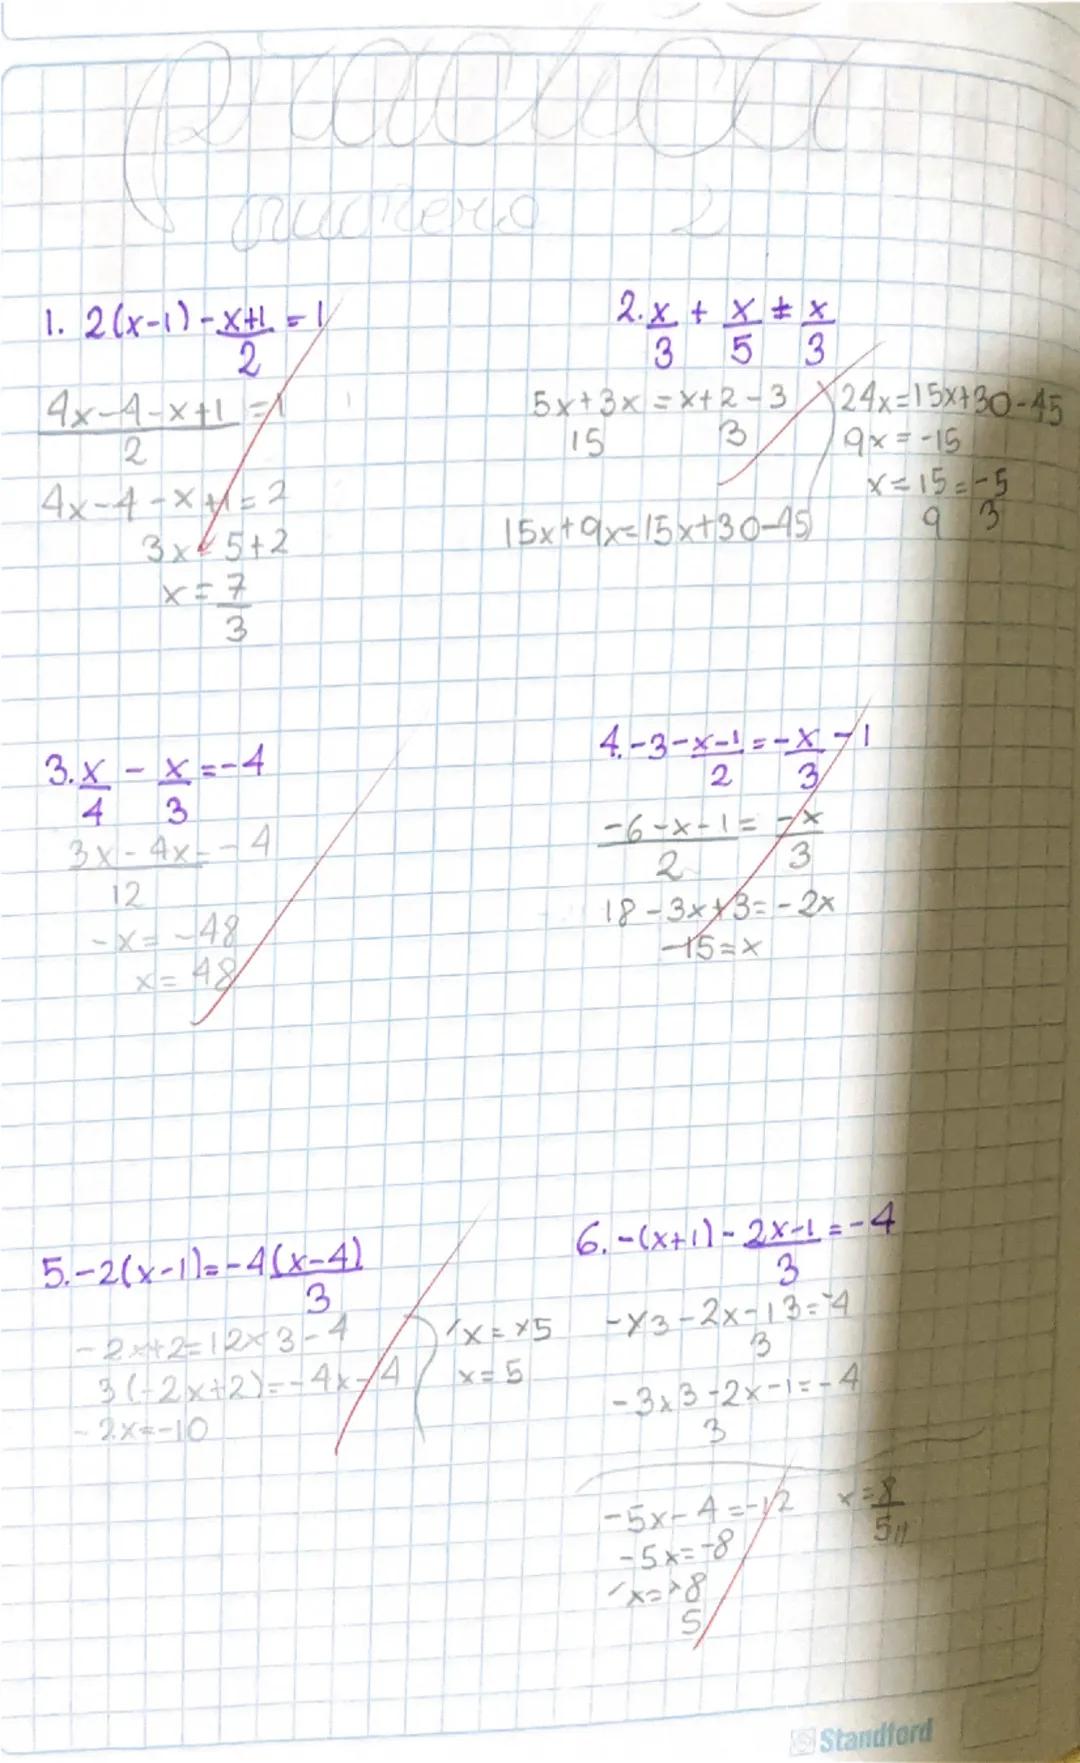 Práctica
número 2
1. 2(x-1) - x+1/2 = 1
4x-4-x+1/2 = 1
4x-4-x+1=2
3x=5+2
x=7/3
2. x/3 + x/5 ± x/3
5x+3x/15 = x+2-3/3
15x+9x=15x+30-45
24x=15x+30-45
9x=-15
x=15/9=-5/3
3. x/4 - x/3 = -4
3x-4x/12=-4
-x=-48
x=48
4. -3-x-1/2=-x/3-1
-6-x-1/2=-x/3
18-3x+3=-2x
-15=x
5. -2(x-1)=-4(x-4)/3
-2x+2=12x3-4
3(-2x+2)=-4x-4
-2x=-10
x=x5
x=5
6. -(x+1)-2x-1/3=-4
-x3-2x-13/3=-4
-3x3-2x-1/3=-4
-5x-4=-12
-5x=-8
x=8/5
x=8/5
Standford